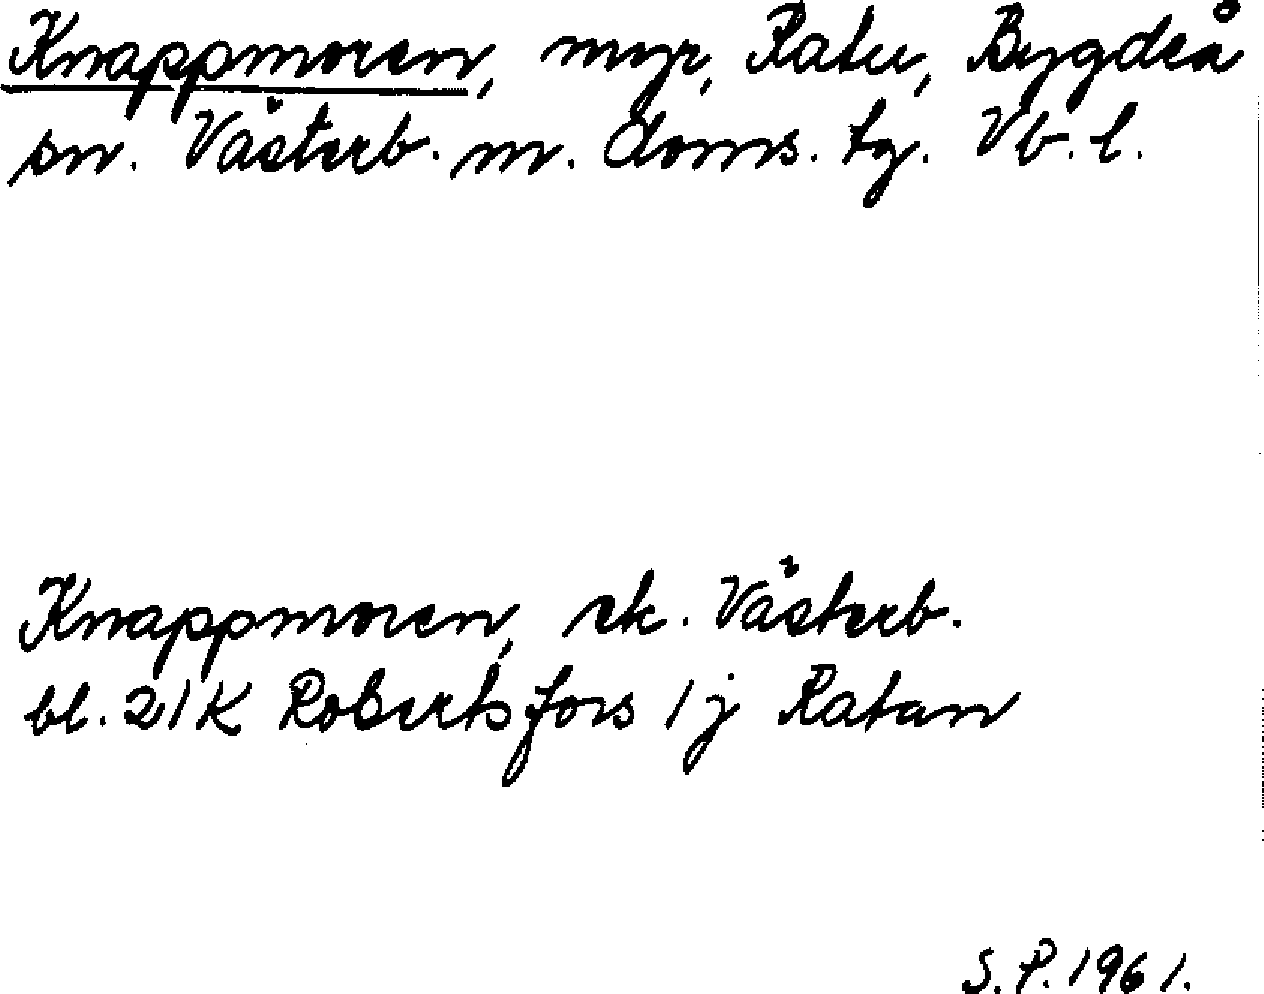 Knappmoren, myr, Ratu, Bygdeå
sn. Västerb. m. doms. tg. Vb. l.
Knappmoren, ek. Västerb.
bl. 21K Robertsfors 1j Ratan
S.P. 1961.